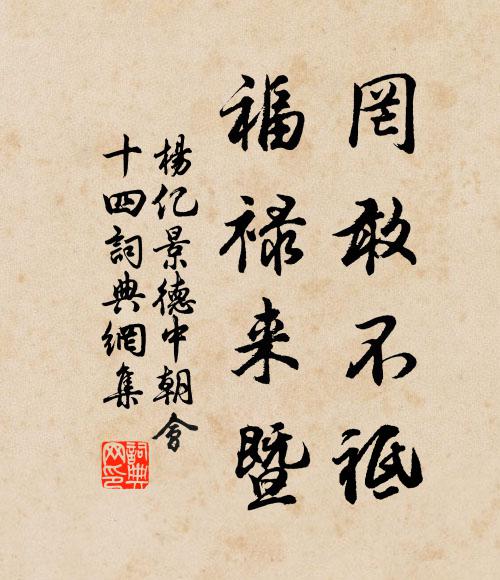 罔敢不祗
福禄来暨
杨亿景德中朝會
十四詞典網集
詞典
网印